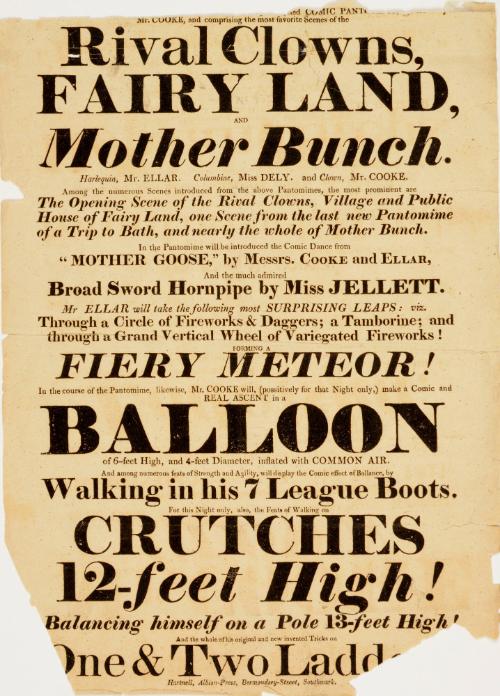 COMIC PANT
Mr. COOKE, and comprising the most favorite Scenes of the
Rival Clowns,
FAIRY LAND,
AND
Mother Bunch.
Harlequin, Mr. ELLAR. Columbine, Miss DELY. and Clown, Mr. COOKE.
Among the numerous Scenes introduced from the above Pantomimes, the most prominent are
The Opening Scene of the Rival Clowns, Village and Public
House of Fairy Land, one Scene from the last new Pantomime
of a Trip to Bath, and nearly the whole of Mother Bunch.
In the Pantomime will be introduced the Comic Dance from
"MOTHER GOOSE," by Messrs. COOKE and ELLAR,
And the much admired
Broad Sword Hornpipe by Miss JELLETT.
Mr ELLAR will take the following most SURPRISING LEAPS: viz.
Through a Circle of Fireworks & Daggers; a Tamborine; and
through a Grand Vertical Wheel of Variegated Fireworks!
FORMING A
FIERY METEOR!
In the course of the Pantomime, likewise, Mr. COOKE will, (possitively for that Night only,) make a Comic and
REAL ASCENT in a
BALLOON
of 6-feet High, and 4-feet Diameter, inflated with COMMON AIR.
And among numerous feats of Strength and Agility, will display the Comic effect of Ballance, by
Walking in his 7 League Boots.
For this Night only, also, the Feats of Walking on
CRUTCHES
12-feet High!
Balancing himself on a Pole 13-feet High!
And the whole of his original and new invented Tricks on
One & Two Ladde
Hartnell, Albion-Press, Bermondsey-Street, Southwark.